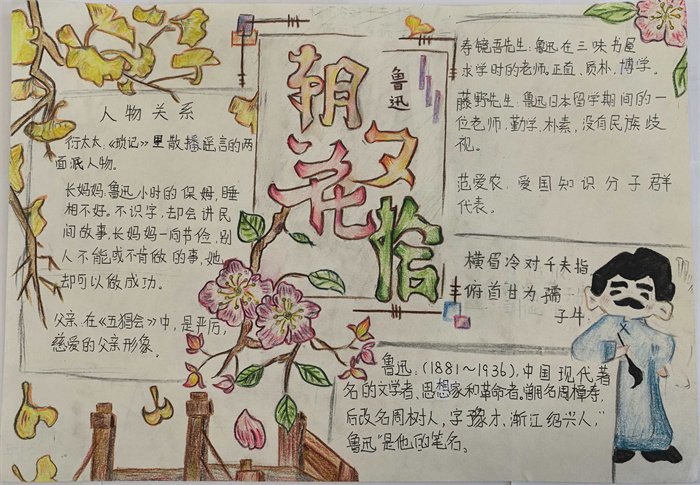 朝花夕拾
鲁迅
人物关系
行太太:《琐记》里散播谣言的两
面派人物。
长妈妈:鲁迅小时的保姆,睡
相不好。不识字,却会讲民
间故事,长妈妈一向节俭,别
人不能或不肯做的事,她
却可以做成功。
父亲:在《五猖会》中,是严厉,
慈爱的父亲形象。
寿镜吾先生:鲁迅在三味书屋
求学时的老师。正直、质朴,博学。
藤野先生:鲁迅日本留学期间的一
位老师,勤学、朴素,没有民族歧
视。
范爱农:爱国知识分子群
代表。
横眉冷对千夫指,
俯首甘为孺
子牛,
鲁迅:(1881~1936),中国现代著
名的文学者、思想家和革命者。曾用名周樟寿,
后改名周树人,字豫才,浙江绍兴人,“
鲁迅”是他的笔名。